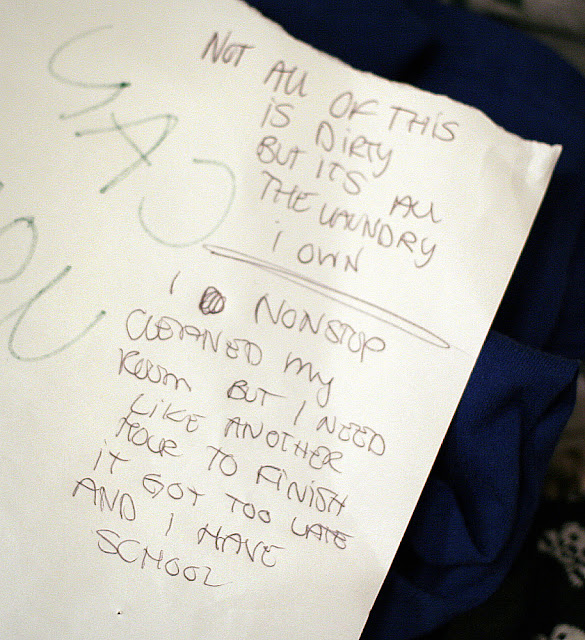 NOT ALL OF THIS
IS DIRTY
BUT ITS ALL
THE LAUNDRY
I OWN
I NONSTOP
CLEANED MY
ROOM BUT I NEED
LIKE ANOTHER
HOUR TO FINISH
IT GOT TOO LATE
AND I HAVE
SCHOOL